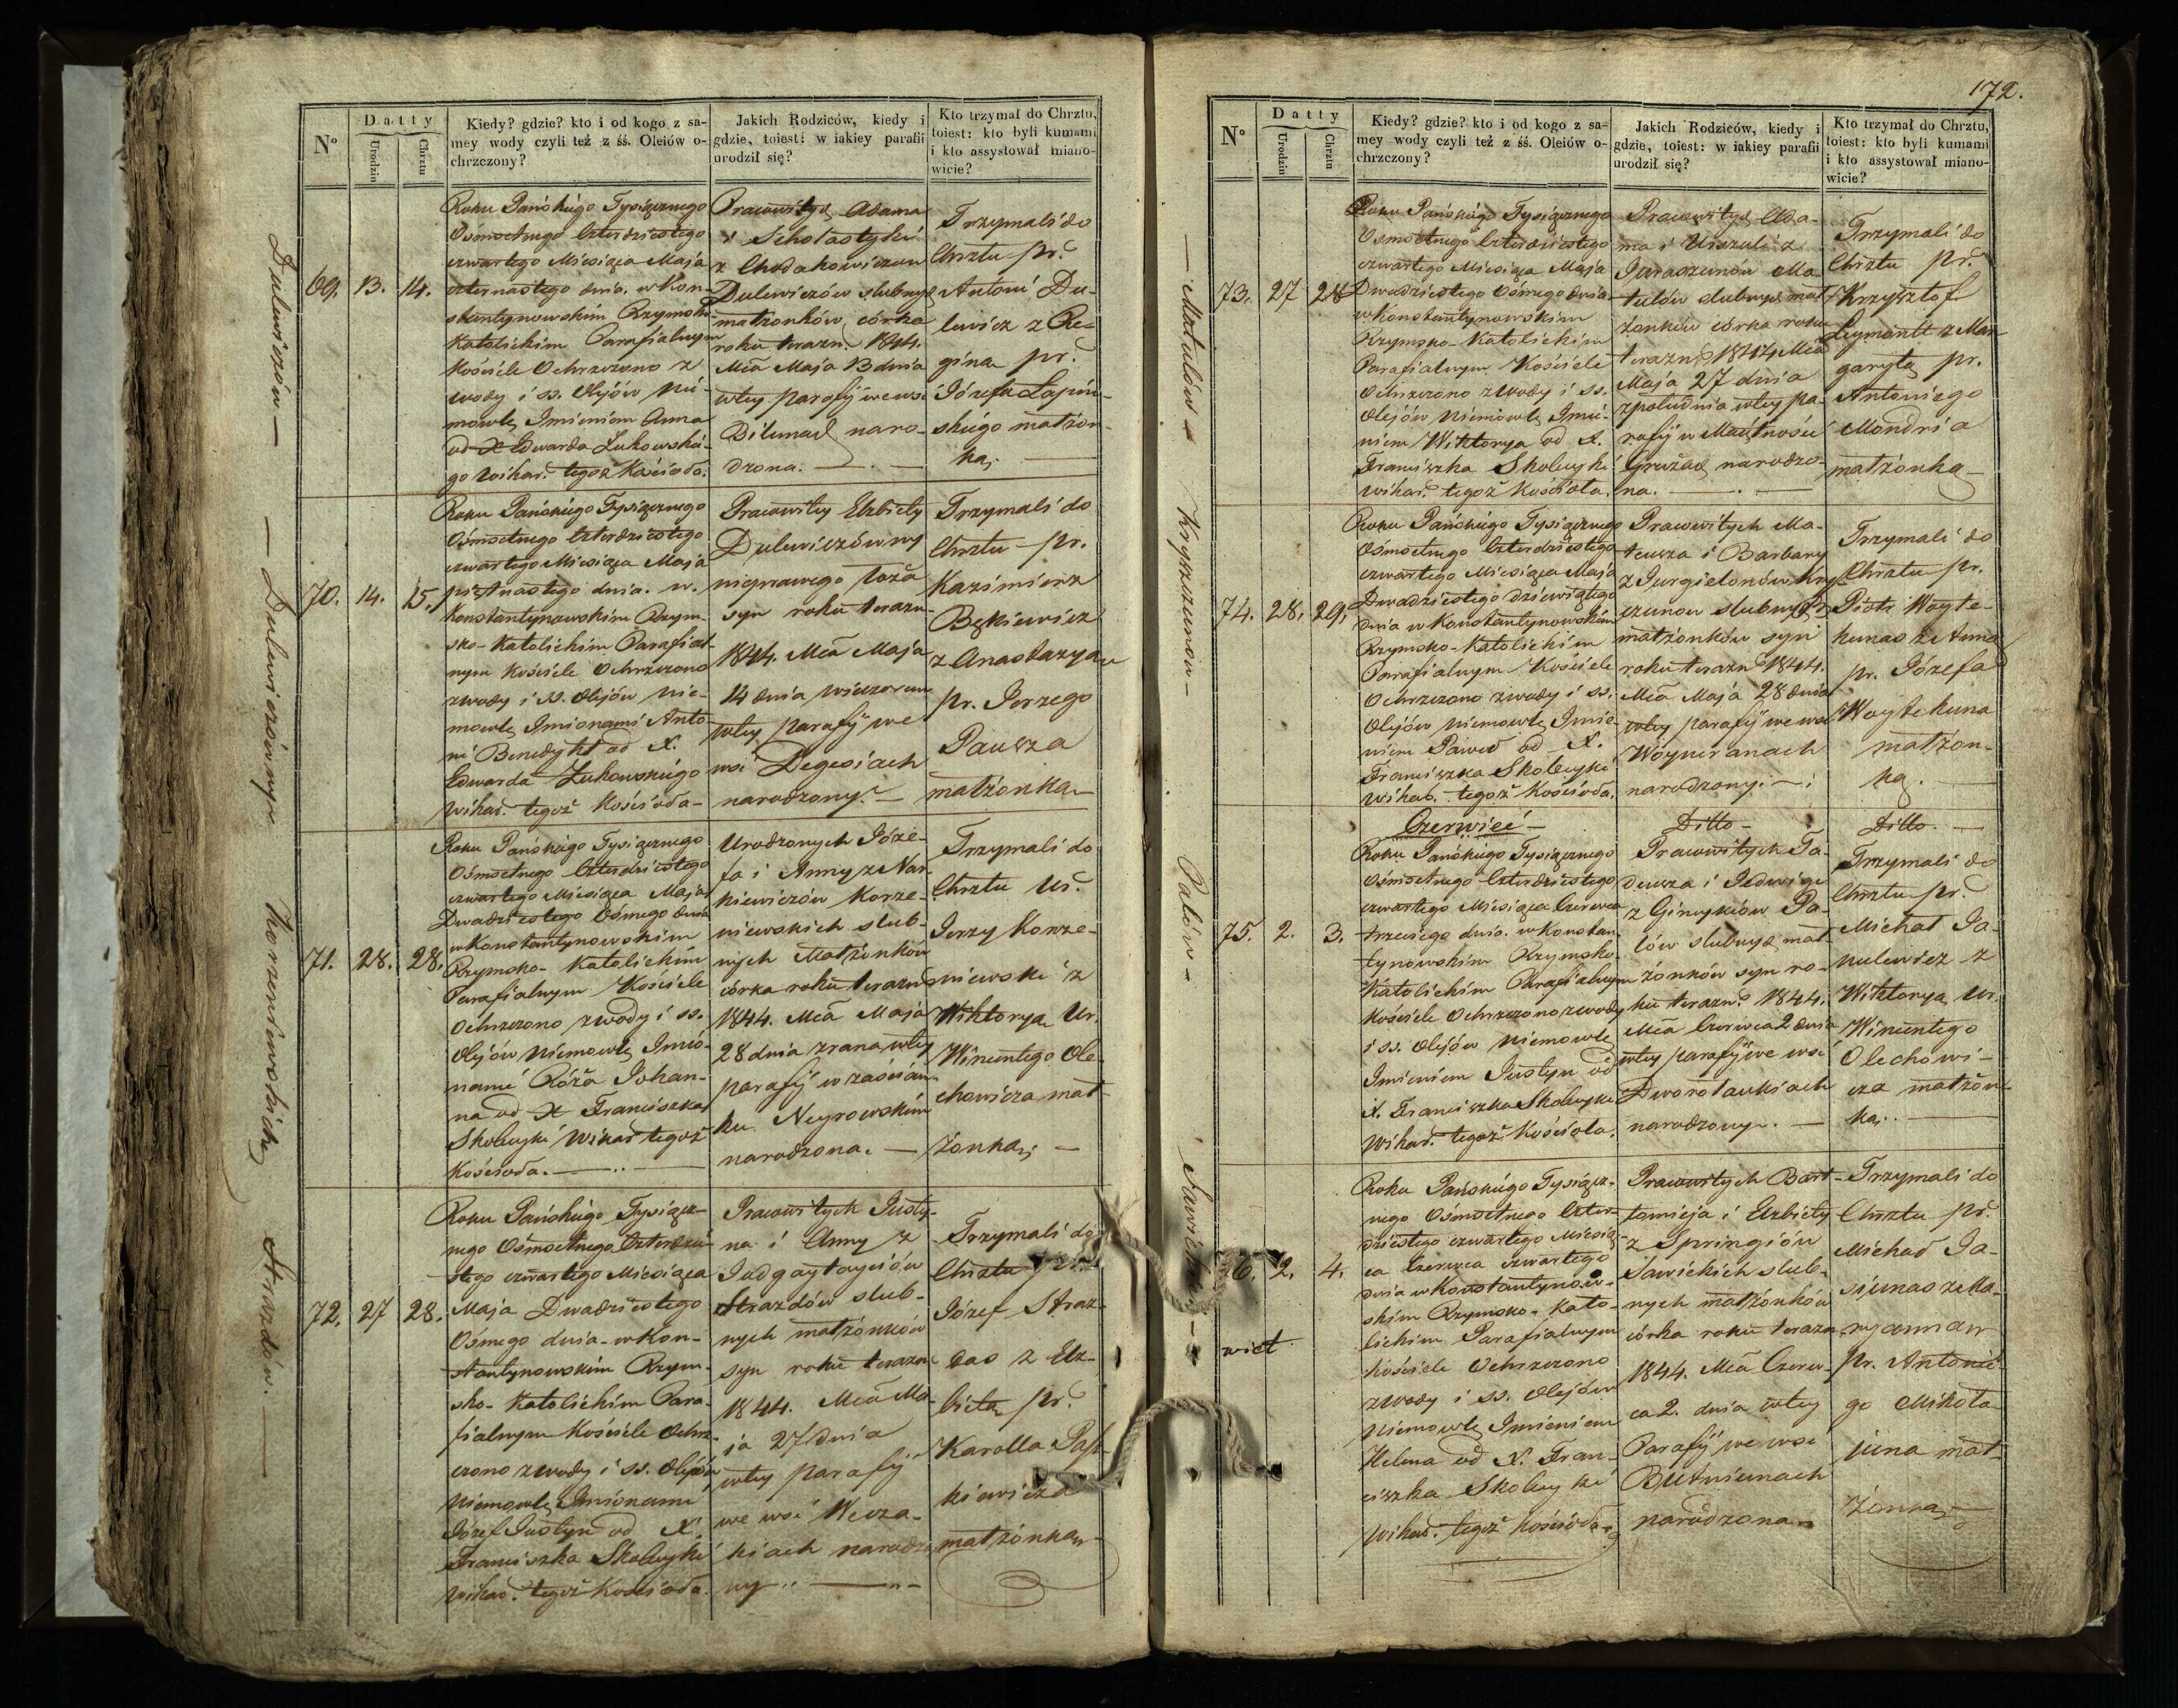 Dulewiczów — Dulewiczównych Korzeniewskich Strazdów. —
Nº
Datty
Urodzin
Chrztu
Kiedy? gdzie? kto i od kogo z sa-
mey wody czyli też z śś. Oleiów o-
chrzczony?
Jakich Rodziców, kiedy i
gdzie, toiest: w iakiey parafii
urodził się?
Kto trzymał do Chrztu,
toiest: kto byli kumami
i kto assystował miano-
wicie?
69. 13. 14.
Roku Pańskiego Tysiącznego
Ośmsetnego Czterdziestego
czwartego Miesiąca Maja
czternastego dnia. w Kon-
stantynowskim Rzymsko-
Katolickim Parafialnym
Kościele Ochrzczono z
wody i ss. Olejów nie-
mowlę Imieniem Anna
od X Edwarda Żukowskie-
go Wikar. tegoż Kościoła.
Pracowitych Adama
i Scholastyki
z Chodakowiczow
Dulewiczów slubnych
małżonków córka
roku terazn. 1844.
Mca Maja 13 dnia
wtey parafij we wsi
Dilunach naro-
dzona. —
Trzymali do
Chrztu pr.
Antoni Du-
lewicz z Re-
giną pr.
Józefa Łapiń-
skiego małżon-
ką. —
70. 14. 15.
Roku Pańskiego Tysiącznego
Ośmsetnego Czterdziestego
czwartego Miesiąca Maja
piętnastego dnia. w.
Konstantynowskim Rzym-
sko-Katolickim Parafial-
nym Kościele Ochrzczono
zwody i ss. Olejów nie-
mowlę Imionami Anto-
ni Benedykt od X.
Edwarda Żukowskiego
Wikar. tegoż Kościoła —
Pracowitey Elzbiety
Dulewiczówny
nieprawego łoża
syn roku terazn.
1844. Mca Maja
14 dnia wieczorem
wtey parafij we
wsi Degesiach
narodzony. —
Trzymali do
Chrztu — pr.
Kazimierz
Bękiewicz
z Anastazyą
pr. Jerzego
Pausza
małżonką —
71. 28. 28.
Roku Pańskiego Tysiącznego
Ośmsetnego Czterdziestego
czwartego Miesiąca Maja
Dwadziestego Ośmego dnia
w Konstantynowskim
Rzymsko-Katolickim
Parafialnym Kościele
Ochrzczono zwody i ss.
Olejów Niemowlę Imio-
nami Róża Johan-
na od X Franciszka
Skobeyki Wikar tegoż
Kościoła. —
Urodzonych Józe-
fa i Anny z Nar-
kiewiczów Korze-
niewskich slub-
nych Małżonków
córka roku terazn
1844. Mca Maja
28 dnia zrana wtey
parafij w zaścian-
ku Neyrowskim
narodzona. —
Trzymali do
Chrztu Ur.
Jerzy Korze-
niewski z
Wiktoryą Ur.
Wincentego Ole-
chowicza mał-
żonką; —
72. 27 28.
Roku Pańskiego Tysiącz-
nego Ośmsetnego Czterdzie-
stego czwartego Miesiąca
Maja Dwadziestego
Ośmego dnia — w Kon-
stantynowskim Rzym-
sko-Katolickim Para-
fialnym Kościele Ochrz-
czono zwody i ss. Olejów
Niemowlę Imionami
Józef Justyn od X.
Franciszka Skobeyki
Wikar. tegoż Kościoła.
Pracowitych Justy-
na i Anny z
Judgaytayciów
Strazdów slub-
nych małżonków
syn roku terazn.
1844. Mca Ma-
ja 27 dnia
wtey parafij
we wsi Wewza-
kiach narodzo
ny. —
Trzymali do
Chrztu pr.
Józef Straz-
das z Elz-
bietą pr.
Karolla
kiewicza
małżonką —
172.
— Matulów — Kryszczunów — Palów — Sawickiej —
Nº
Datty
Urodzin
Chrztu
Kiedy? gdzie? kto i od kogo z sa-
mey wody czyli też z śś. Oleiów o-
chrzczony?
Jakich Rodziców, kiedy i
gdzie, toiest: w iakiey parafii
urodził się?
Kto trzymał do Chrztu,
toiest: kto byli kumami
i kto assystował miano-
wicie?
73. 27 28
Roku Pańskiego Tysiącznego
Ośmsetnego Czterdziestego
czwartego Miesiąca Maja
Dwadziestego Ośmego dnia
w Konstantynowskim
Rzymsko-Katolickim
Parafialnym Kościele
Ochrzczono zwody i ss.
Olejów Niemowlę Imie-
niem Wiktorya od X.
Franciszka Skobeyki
Wikar. tegoż Kościoła.
Pracowitych Ada-
ma i Urszuli z
Juraszunów Ma-
tulów slubnych mał-
żonków córka roku
terazn. 1844 Mca
Maja 27 dnia
zpołudnia wtey pa-
rafij w Maiętności
Grużach narodzo-
na. —
Trzymali do
Chrztu pr.
Krzysztof
Leymontt z Mar-
garytą pr.
Antoniego
Mondria
małżonką —
74. 28. 29.
Roku Pańskiego Tysiącznego
Ośmsetnego Czterdziestego
czwartego Miesiąca Maja
Dwadziestego dziewiątego
dnia w Konstantynowskim
Rzymsko-Katolickim
Parafialnym Kościele
Ochrzczono zwody i ss.
Olejów Niemowlę Imie-
niem Paweł od X.
Franciszka Skobeyki
Wikar. tegoż Kościoła.
Pracowitych Ma-
teusza i Barbary
z Jurgielonów Kry-
czunow slubnych
małżonków syn
roku terazn 1844.
Mca Maja 28 dnia
wtey parafij we wsi
Woyneranach
narodzony. —
Trzymali do
Chrztu pr.
Piotr Woyte-
kunas z Anną
pr. Józefa
Woytekuna
małżon-
ką. —
Czerwiec — Ditto — Ditto. —
75. 2. 3.
Roku Pańskiego Tysiącznego
Ośmsetnego Czterdziestego
czwartego Miesiąca Czerwca
trzeciego dnia. w Konstan-
tynowskim Rzymsko-
Katolickim Parafialnym
Kościele Ochrzczono zwody
i ss. Olejów Niemowlę
Imieniem Justyn od
X. Franciszka Skobeyki
Wikar. tegoż Kościoła.
Pracowitych Ta-
deusza i Jedwigi
z Gineykiow Pa-
lów slubnych mał-
żonków syn ro-
ku terazn. 1844.
Mca Czerwca 2 dnia
wtey parafij we wsi
Dworołaukiach
narodzony. —
Trzymali do
Chrztu pr.
Michał Ja-
nulewicz z
Wiktoryą Ur.
Wincentego
Olechowi-
cza małżon-
ką. —
76. 2. 4.
Roku Pańskiego Tysiącz-
nego Ośmsetnego Czter-
dziestego czwartego Miesią-
ca Czerwca czwartego
dnia w Konstantynow-
skim Rzymsko-Kato-
lickim Parafialnym
Kościele Ochrzczono
zwody i ss. Olejów
Niemowlę Imieniem
Helena od X. Fran-
ciszka Skobeyki
Wikar. tegoż Kościoła.
Pracowitych Bart-
łomieja i Elzbiety
z Springiów
Sawickich slub-
nych małżonków
córka roku terazn.
1844. Mca Czerw-
ca 2. dnia wtey
Parafij we wsi
Butniunach
narodzona.
Trzymali do
Chrztu pr.
Michał Ja-
siunas z Ma-
ryanną
pr. Antonie-
go Mikoła-
juna mał-
żonką —